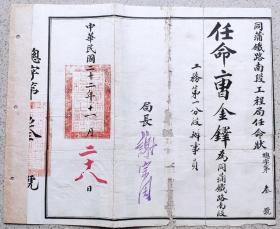 同蒲鐵路南段工程局任命狀
總字第 叁 號
任命曹金鐸為同蒲鐵路南段
工務第一分段辦事員
局長
謝宗周
中華民國二十二年十一月二十八日
總字第 號